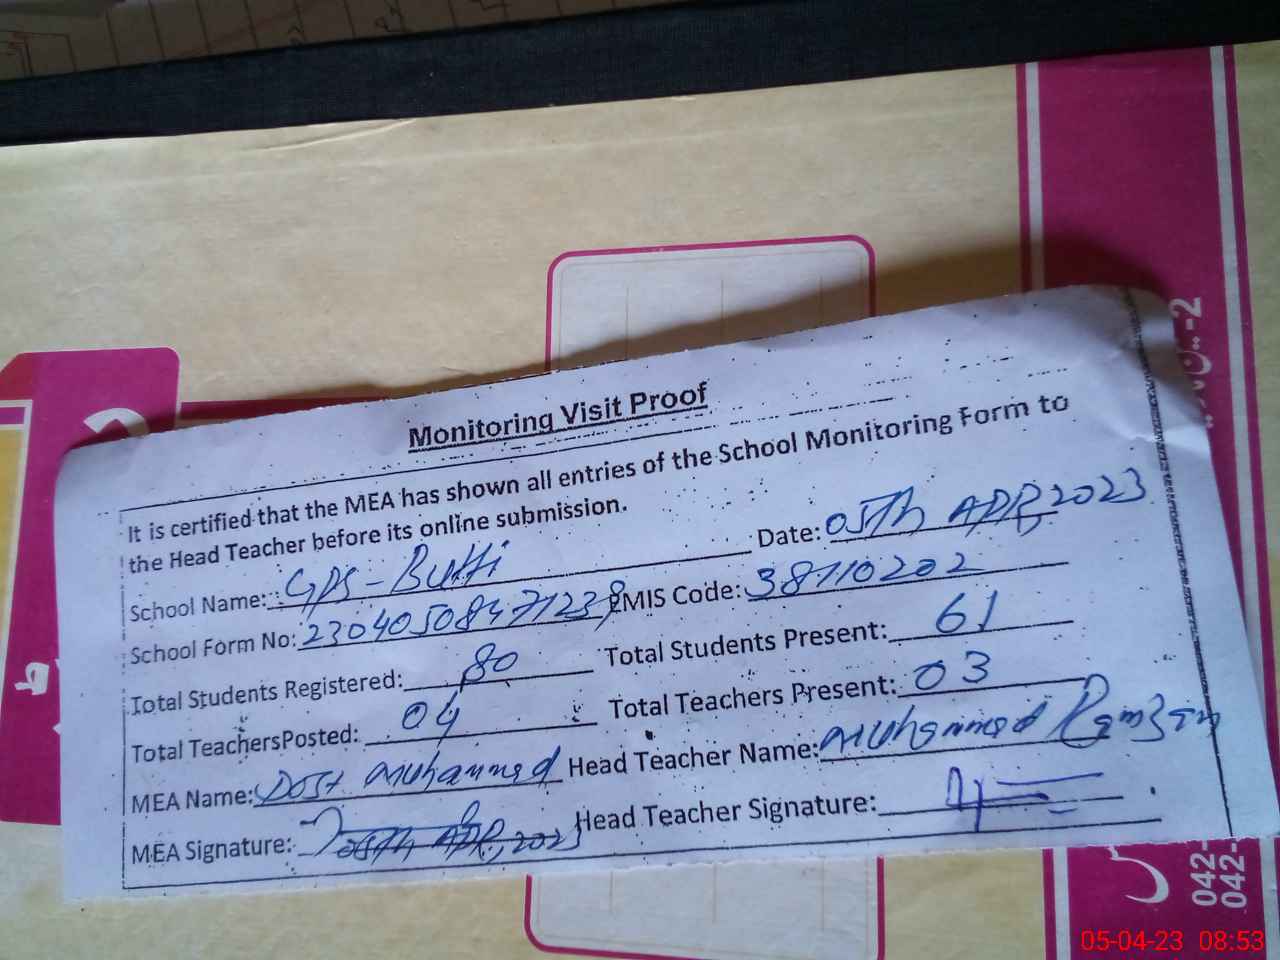 Monitoring Visit Proof
It is certified that the MEA has shown all entries of the School Monitoring Form to
the Head Teacher before its online submission.
School Name: GPS-Butti Date: 05Th APR, 2023
School Form No: 23040508471238 EMIS Code: 38110202
Total Students Registered: 80 Total Students Present: 61
Total TeachersPosted: 04 Total Teachers Present: 03
MEA Name: Dost Muhammad Head Teacher Name: Muhammad Ramzan
MEA Signature: 05Th APR, 2023 Head Teacher Signature:
042-
042-
05-04-23 08:53